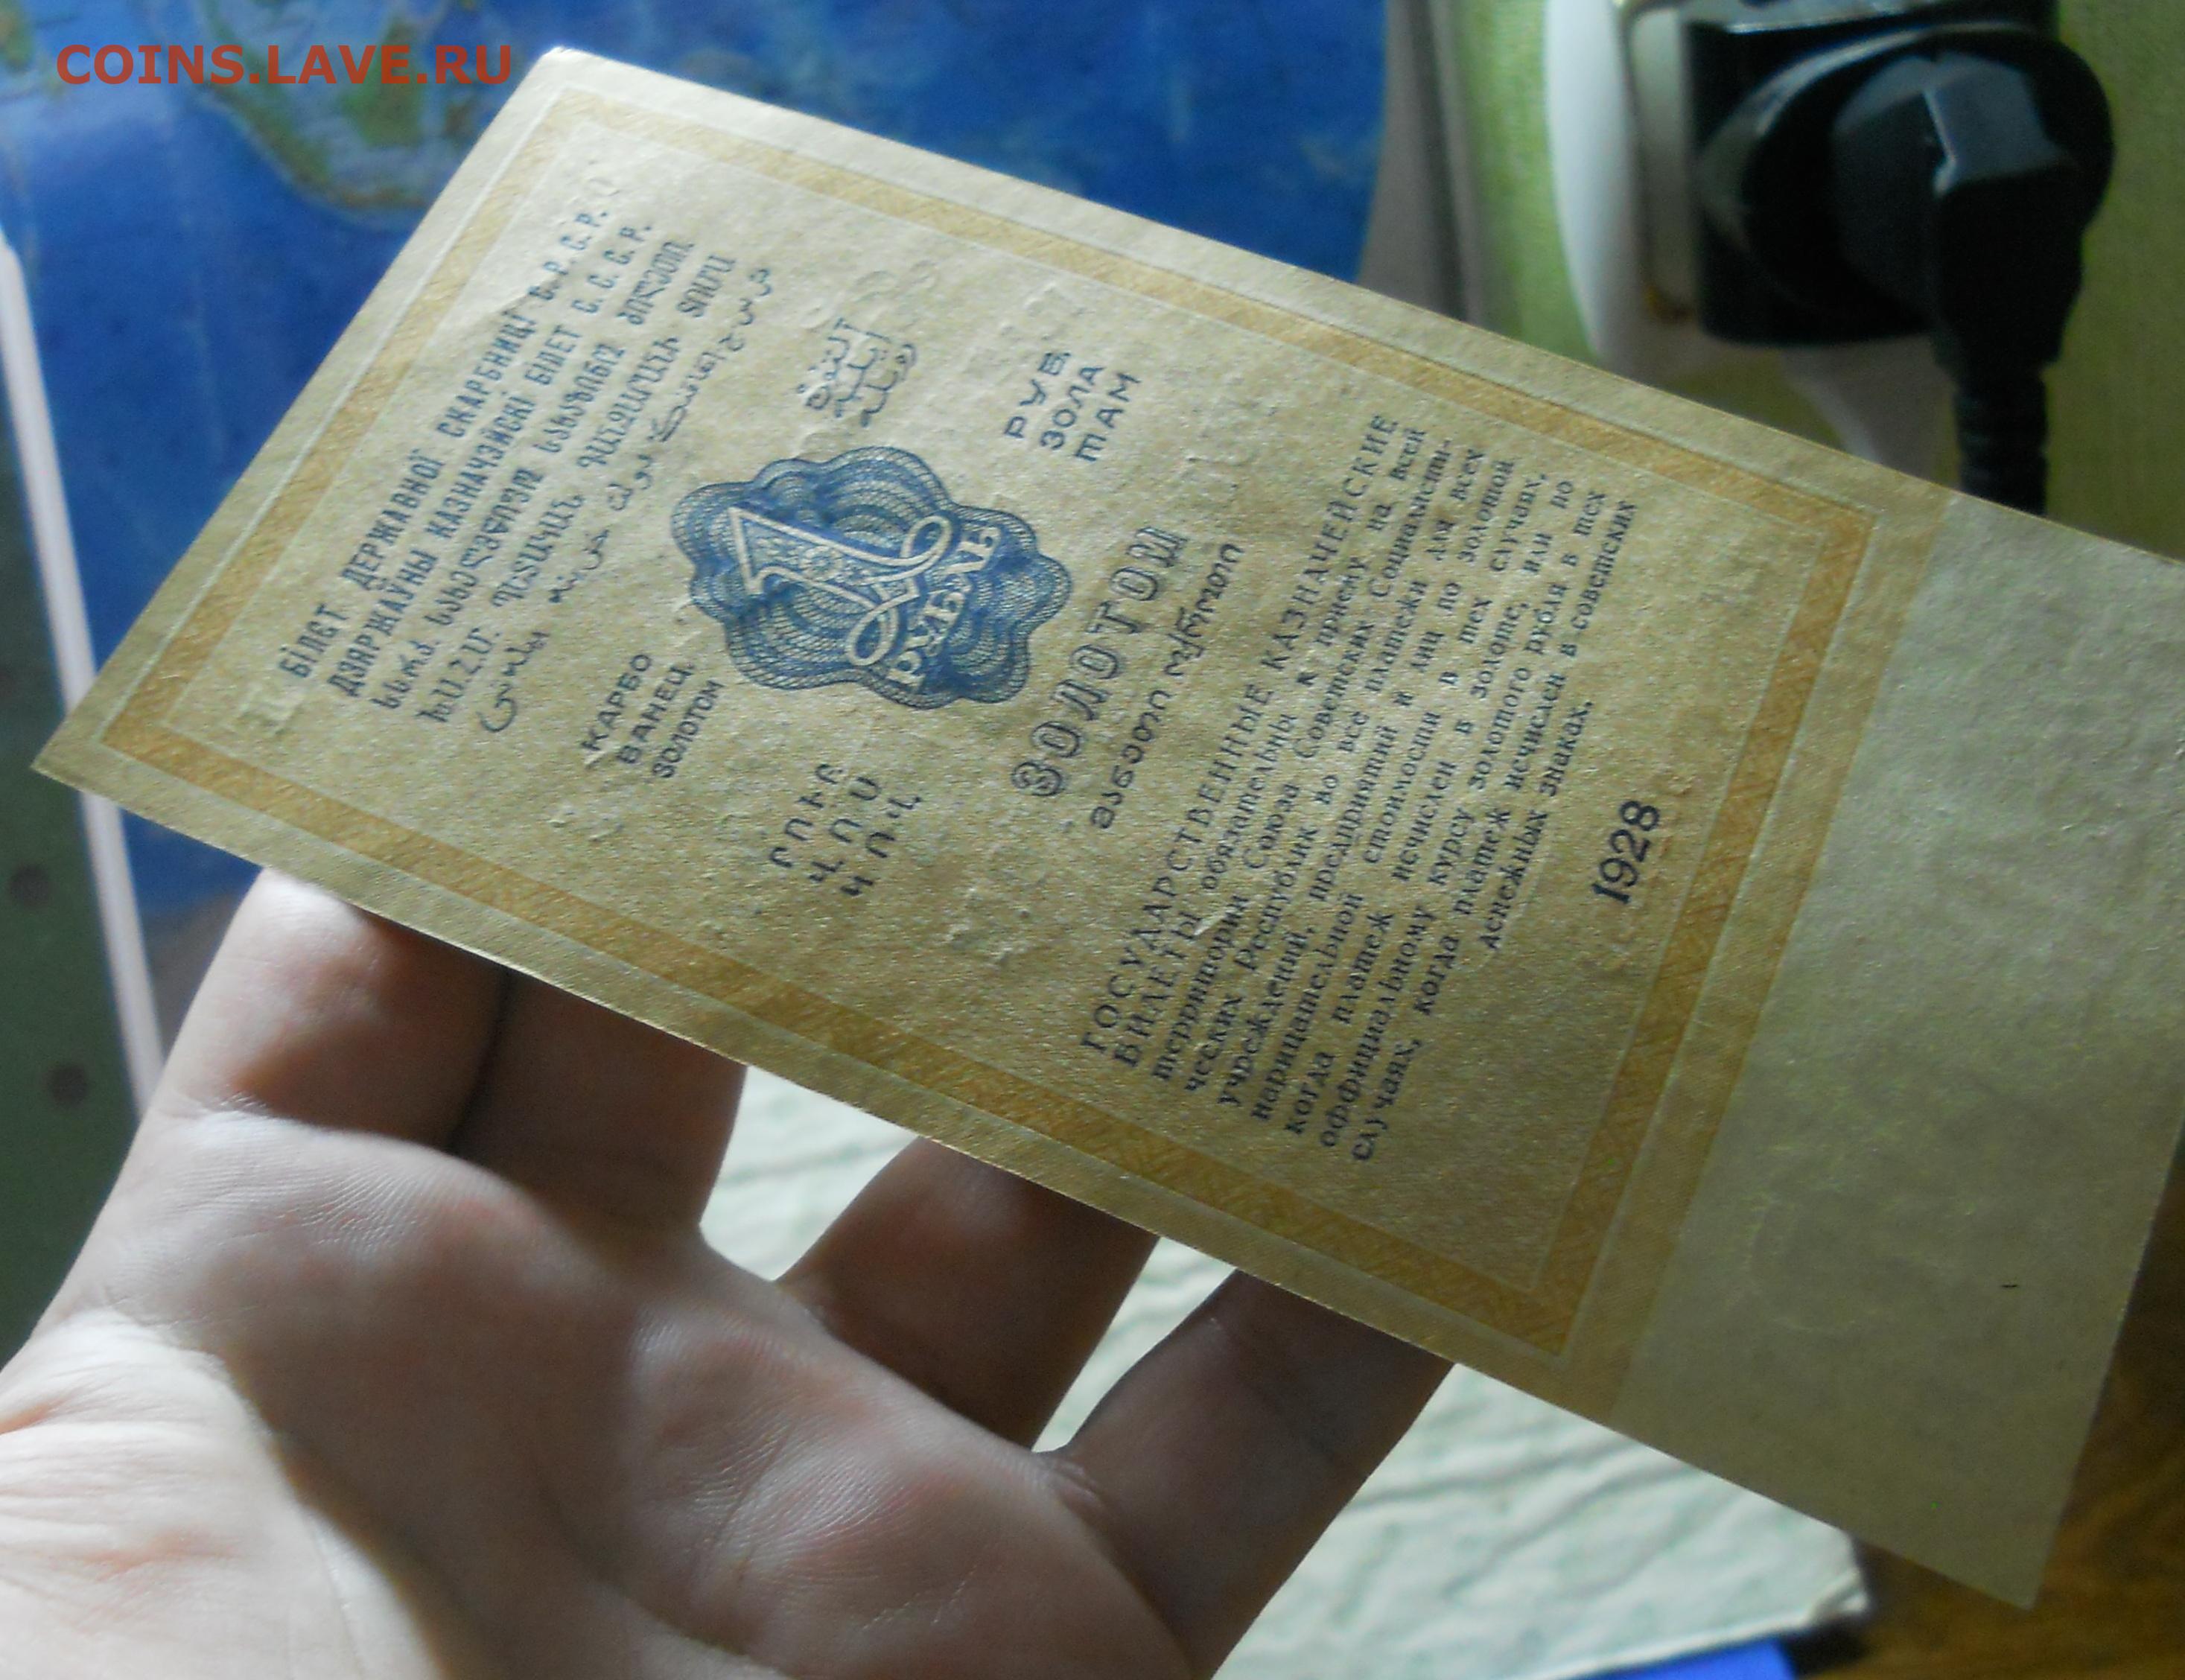 COINS.LAVE.RU
БІЛЕТ ДЕРЖАВНОЇ СКАРБНИЦІ С.Р.С.Р.
ДЗЯРЖАЎНЫ КАЗНАЧЭЙСКІ БІЛЕТ С.С.С.Р.
ԽՍՀՄ. ՊԵՏԱԿԱՆ ԳԱՆՁԱՐԱՆԻ ՏՈՄՍ
КАРБО
ВАНЕЦ
ЗОЛОТОМ
РУБ
ЗОЛА
ТАМ
1
РУБЛЬ
ЗОЛОТОМ
მანეთი ოქროთი
ГОСУДАРСТВЕННЫЕ КАЗНАЧЕЙСКИЕ
БИЛЕТЫ обязательны к приему на всей
территории Союза Советских Социалисти-
ческих Республик во все платежи для всех
учреждений, предприятий и лиц по золотой
нарицательной стоимости в тех случаях,
когда платеж исчислен в золоте, или по
оффициальному курсу золотого рубля в тех
случаях, когда платеж исчислен в советских
денежных знаках.
1928